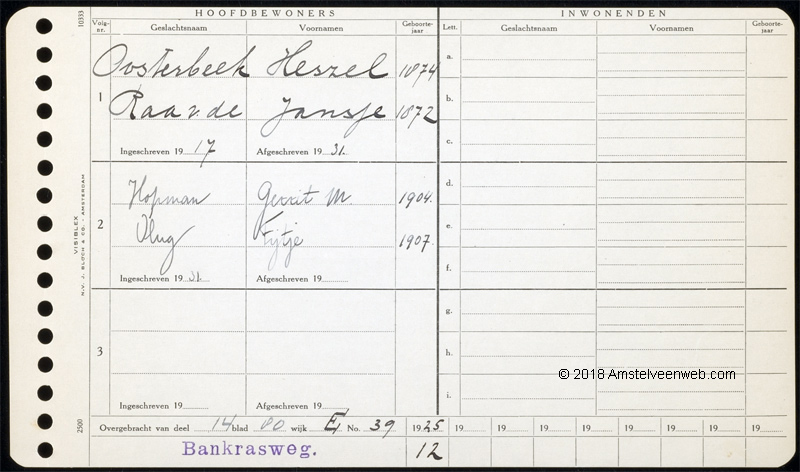 HOOFDBEWONERS INWONENDEN
Volg-nr. Geslachtsnaam Voornamen Geboorte-jaar Lett. Geslachtsnaam Voornamen Geboorte-jaar
10333
Oosterbeek Heszel 1874 a.
1 Raa v. de Jansje 1872 b.
c.
Ingeschreven 19 17 Afgeschreven 19 31.
Hopman Gerrit M. 1904. d.
2 Vlug Tijtje 1907. e.
f.
Ingeschreven 19 31. Afgeschreven 19
VISIBLEX
N.V. J. BLOCH & CO. - AMSTERDAM
g.
3 h.
© 2018 Amstelveenweb.com
i.
Ingeschreven 19 Afgeschreven 19
2500
Overgebracht van deel 14 blad 80 wijk E, No. 39 1925 19 19 19 19 19 19 19 19
Bankrasweg. 12